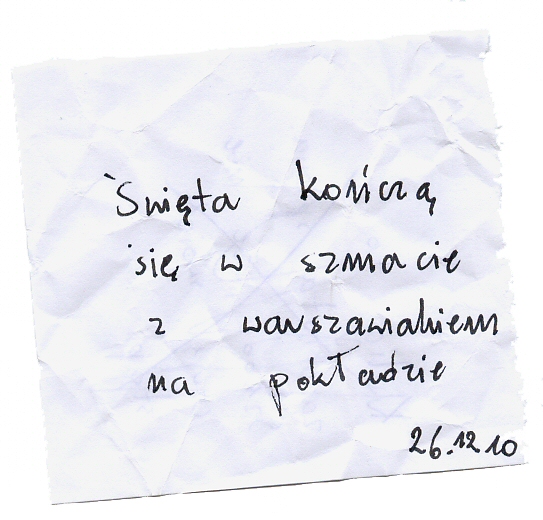 Święta kończą
się w szmacie
z warszawiakiem
na pokładzie
26.12.10